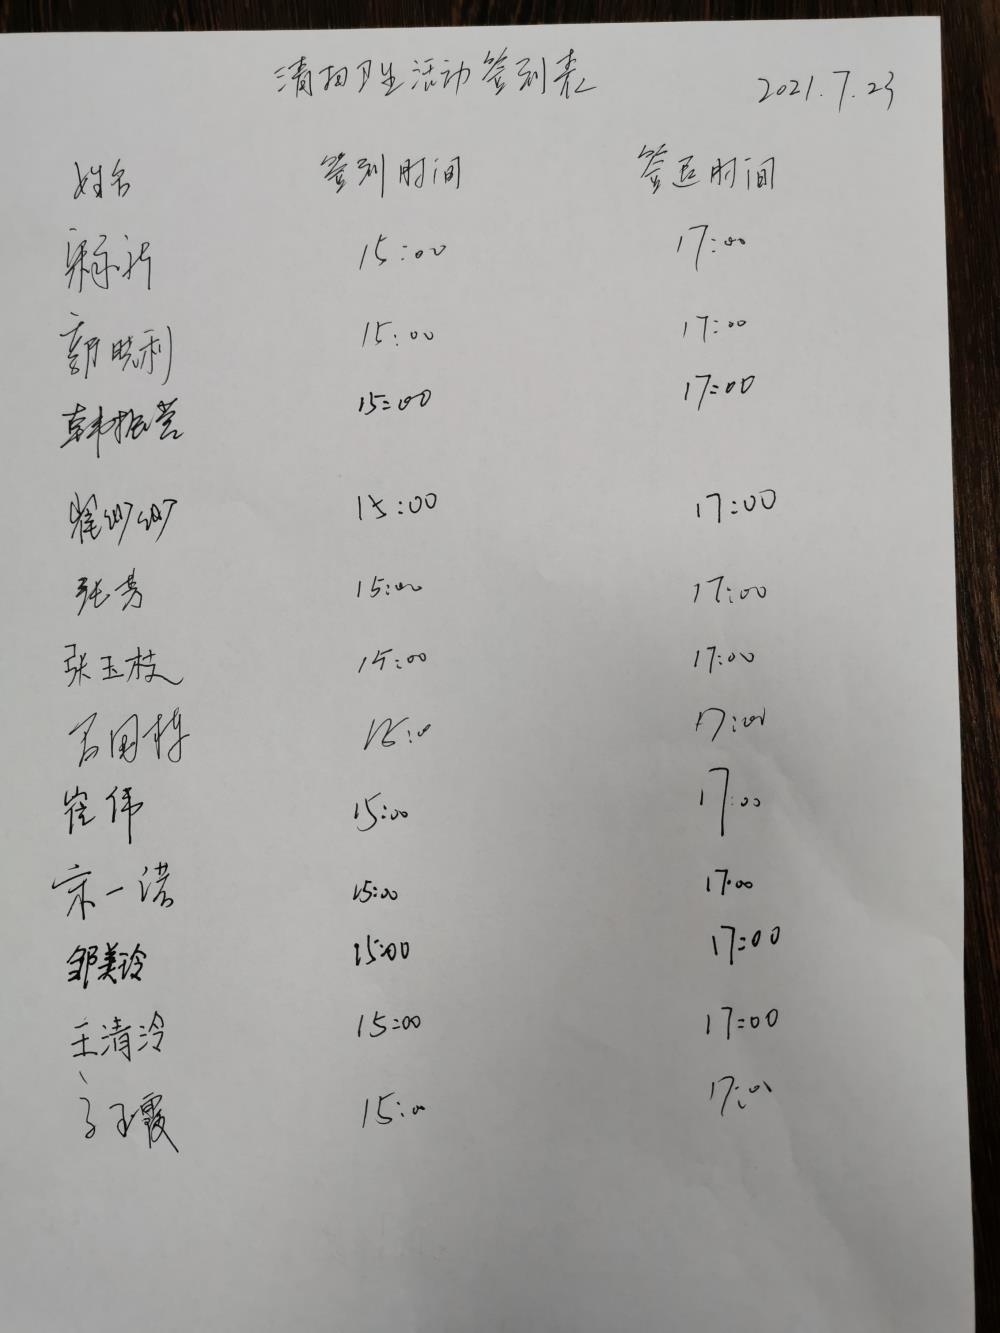 清扫卫生活动签到表 2021.7.23
姓名 签到时间 签退时间
15:00 17:00
郭晓利 15:00 17:00
韩振营 15:00 17:00
翟纱纱 15:00 17:00
张芳 15:00 17:00
张玉枝 15:00 17:00
国栋 15:0 17:00
崔伟 15:00 17:00
宋一诺 15:00 17:00
邹美玲 15:00 17:00
王清泠 15:00 17:00
玉霞 15:00 17:00